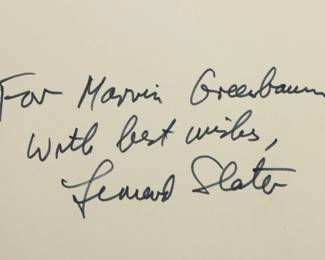 For Marvin Greenbaum
With best wishes,
Leonard Slater